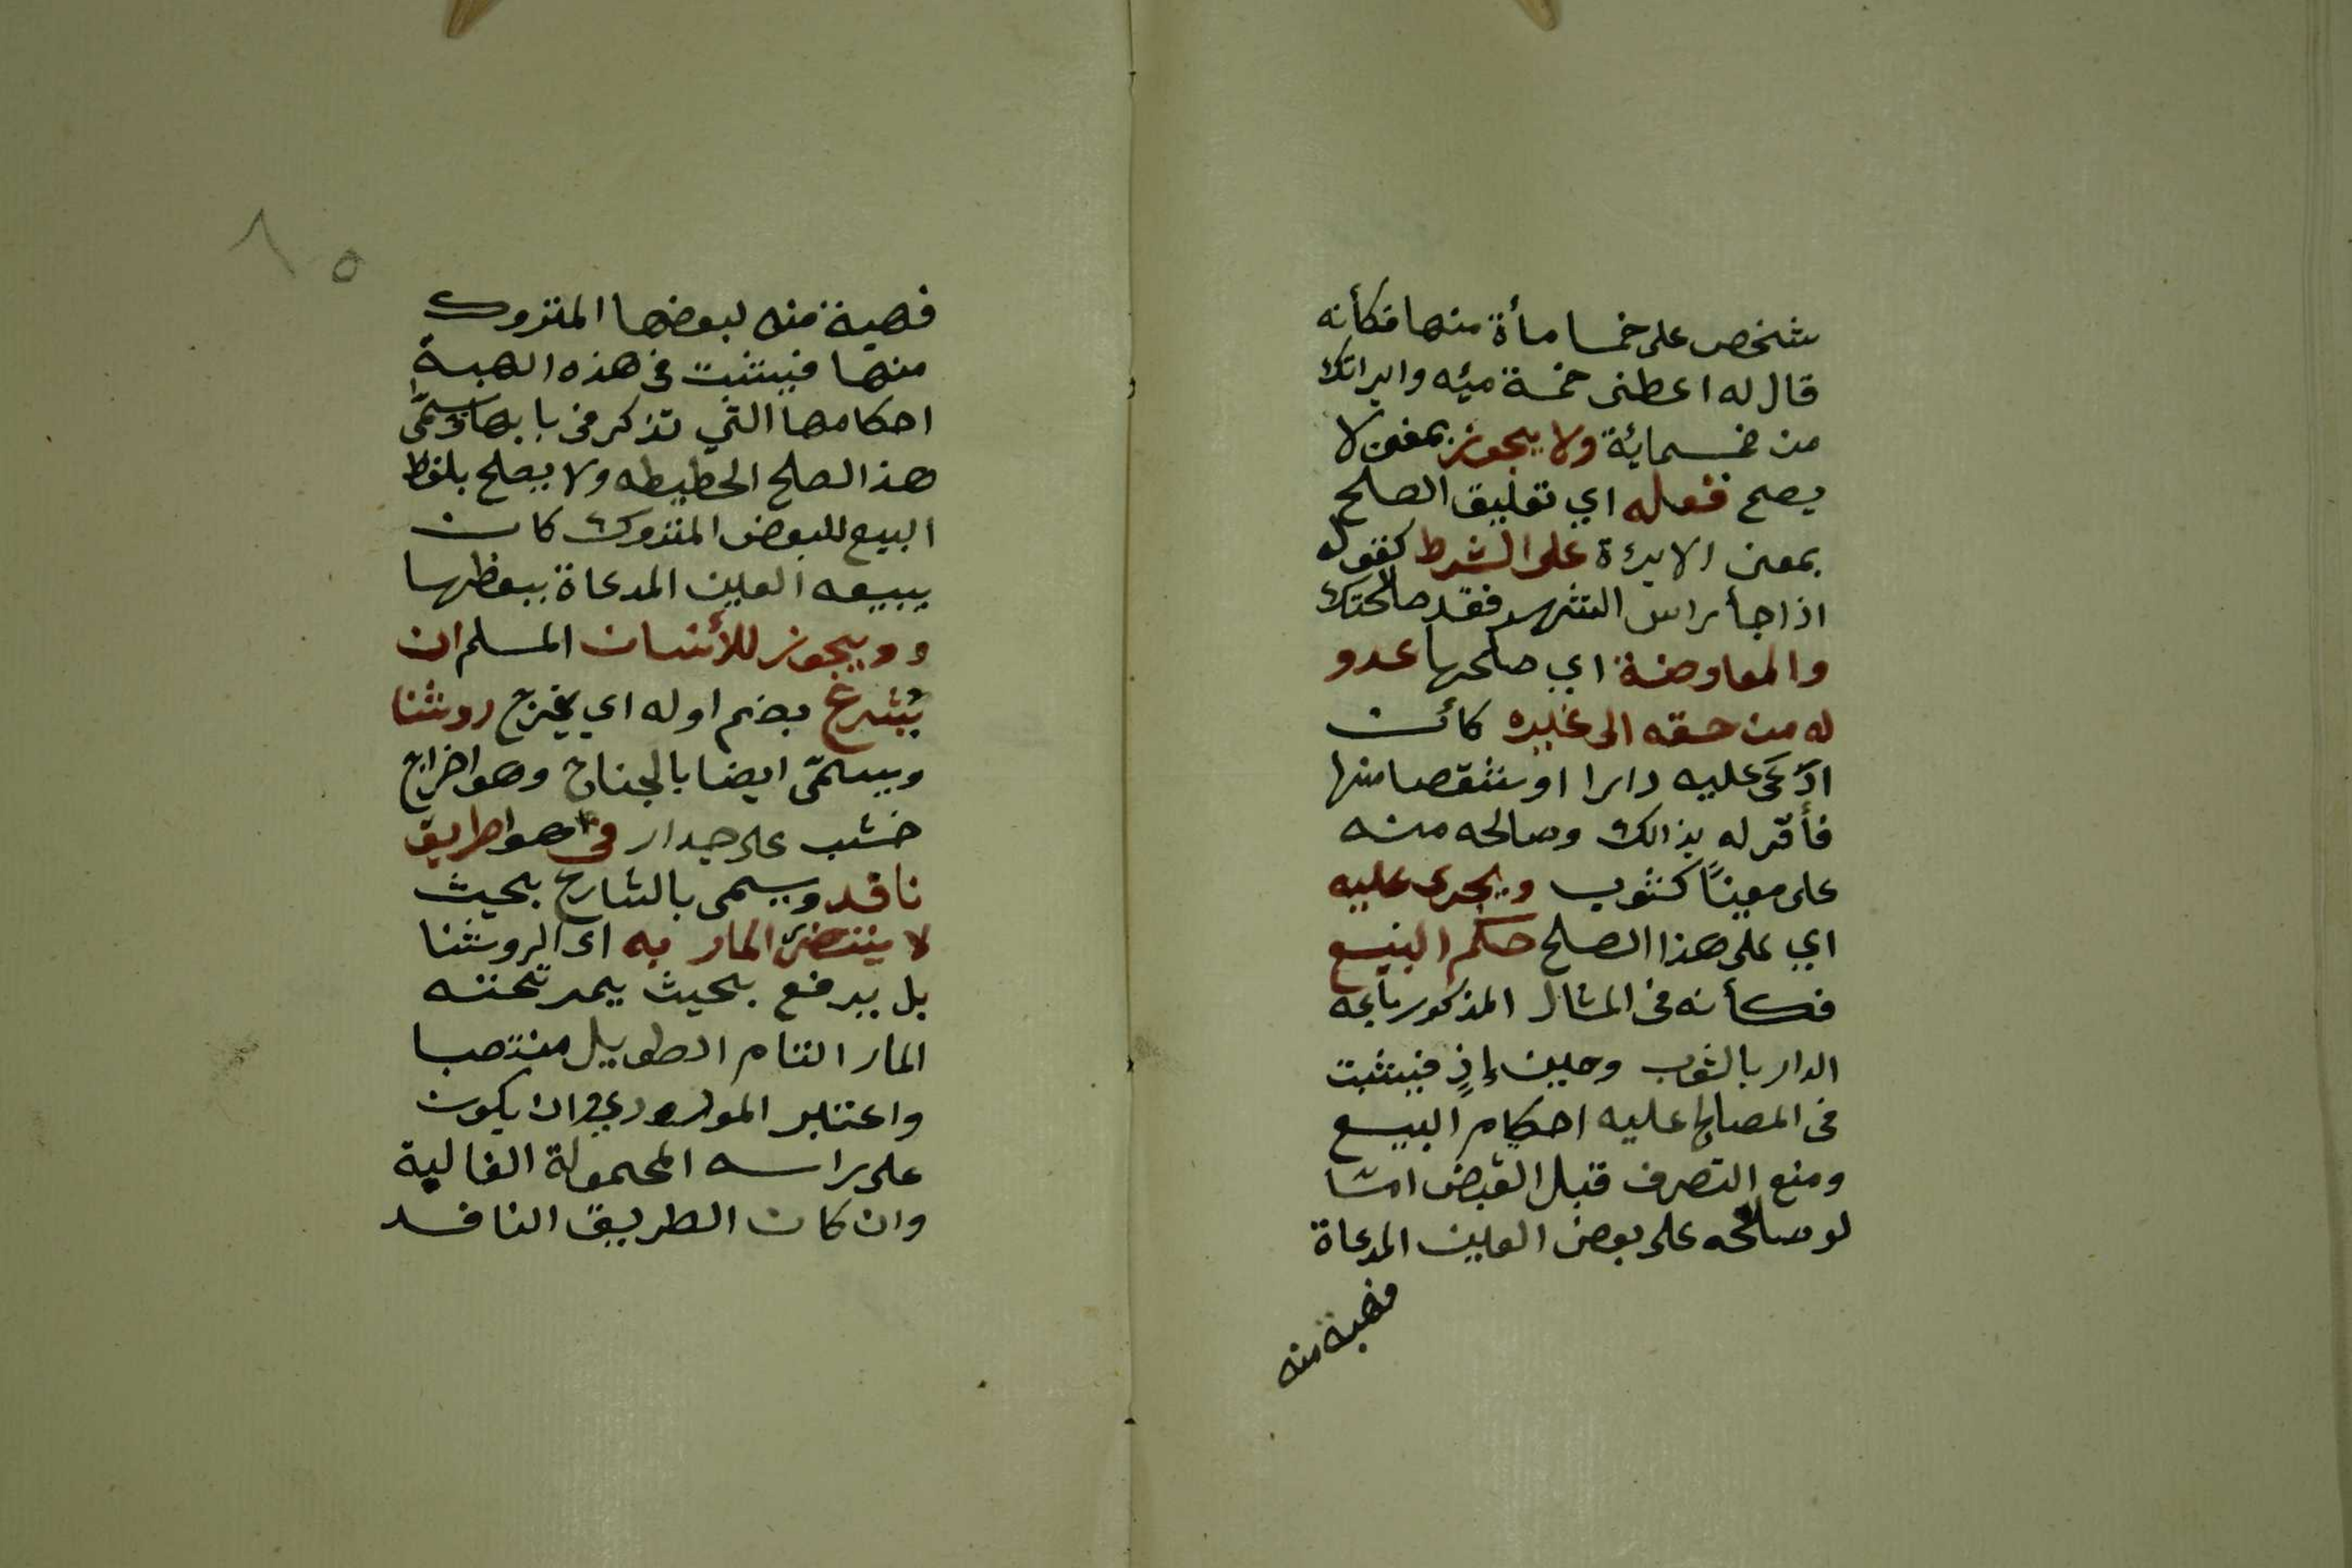 شخص على خمسا مأة منها فكأنه
قال له اعطنى خمسة ميئه وابراتك
من خمسماية ولا يجوز بمعنى لا
يصح فعله اي تعليق الصلح
بمعنى الابرءة على الشرط كقوله
اذا جأ راس الشهر فقد صالحتك
والمعاوضة اي صلحها عدو
له من حقه الى غيره كأن
ادّعى عليه دارا او شقصا منها
فأقر له بذالك وصالحه منه
على معينًا كثوب ويجرى عليه
اي على هذا الصلح حكم البيع
فكأنه فى المثال المذكور باعه
الدار بالثوب وحين إذٍ فيثبت
فى المصالح عليه احكام البيع
ومنع التصرف قبل القبض امثا
لو صالحه على بعض العين المدعاة
فهبة منه
٨٥
فهبة منه لبعضها المتروك
منها فيثبت فى هذه الهبة
احكامها التي تذكر فى بابها ويسمّى
هذا الصلح الحطيطه ولا يصلح بلفظ
البيع للبعض المتروك كان
يبيعه العين المدعاة ببعظها
وويجوز للأنسان المسلم ان
يُشرع بضم اوله اي يخرج روشنا
ويسمّى ايضا بالجناح وهو اخراج
خشب على جدار فى هوا طريق
نافد ويسمى بالشارع بحيث
لا يتضرّ المار به اى الروشنا
بل يرفع بحيث يمر تحته
المار التام الطويل منتصبا
واعتبر الموردي ان يكون
على راسه المحمولة الغالية
وان كان الطريق النافد